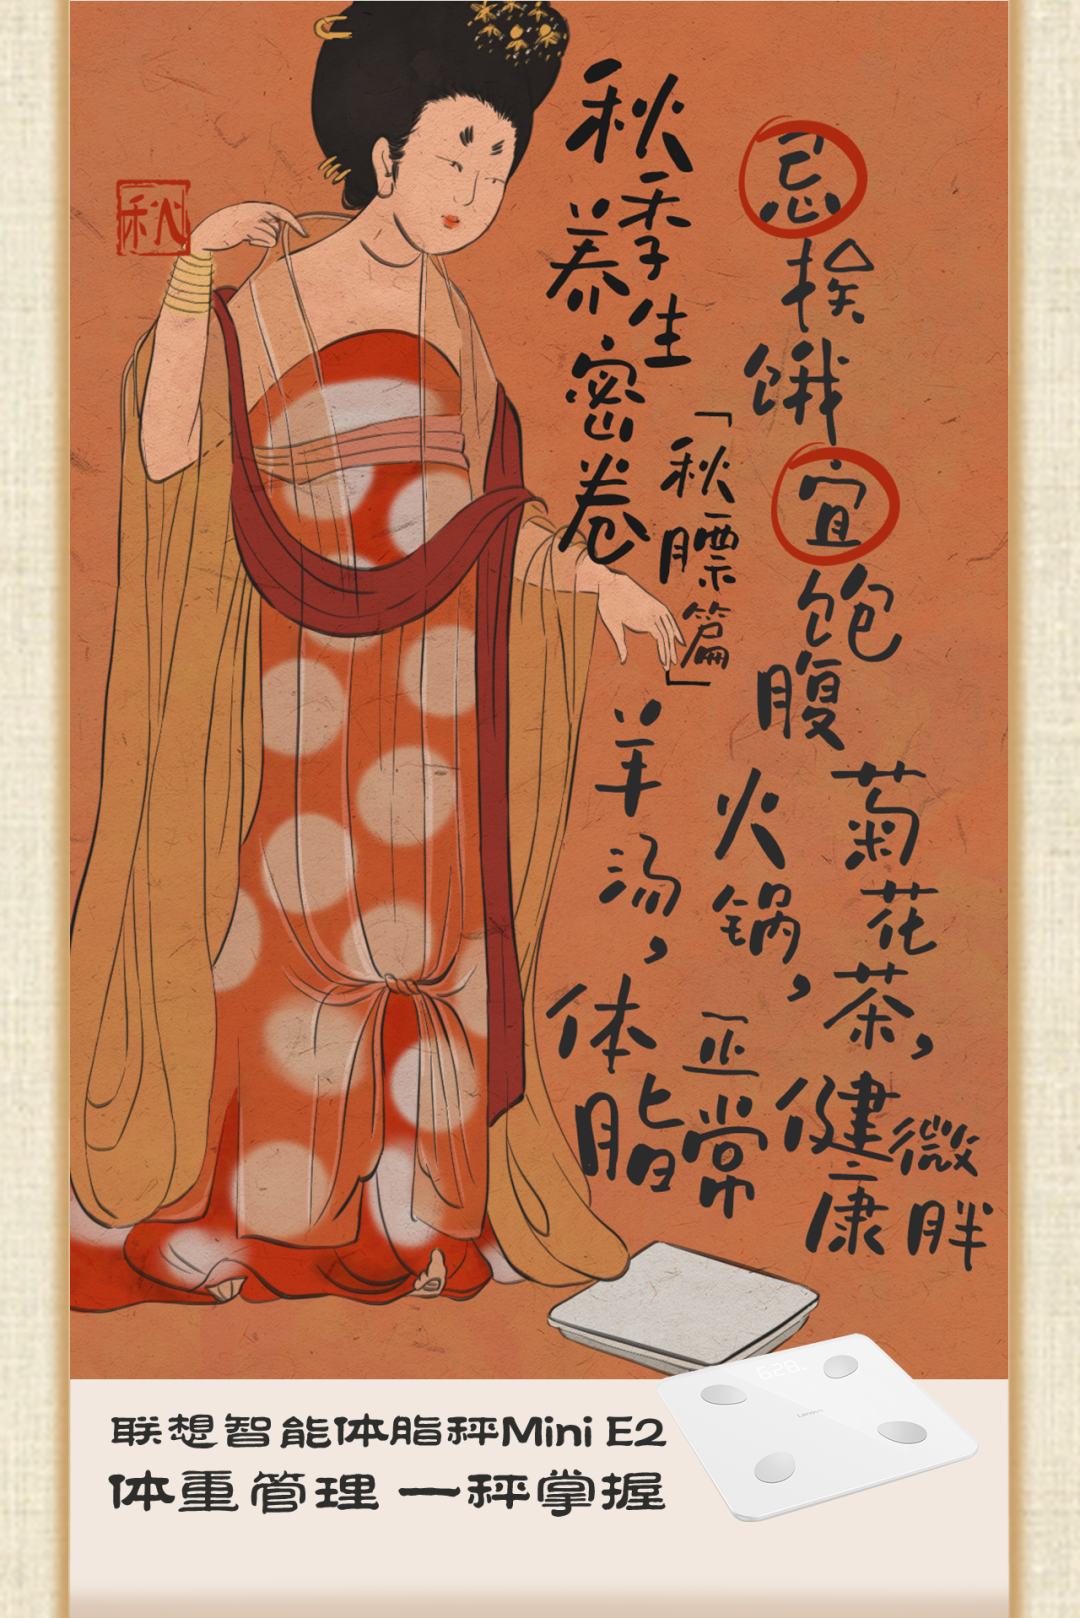 秋
秋季养生密卷
「秋膘篇」
忌挨饿
宜饱腹
羊汤，
火锅，
菊花茶，
体脂
正常
健康
微胖
联想智能体脂秤Mini E2
体重管理 一秤掌握
Lenovo